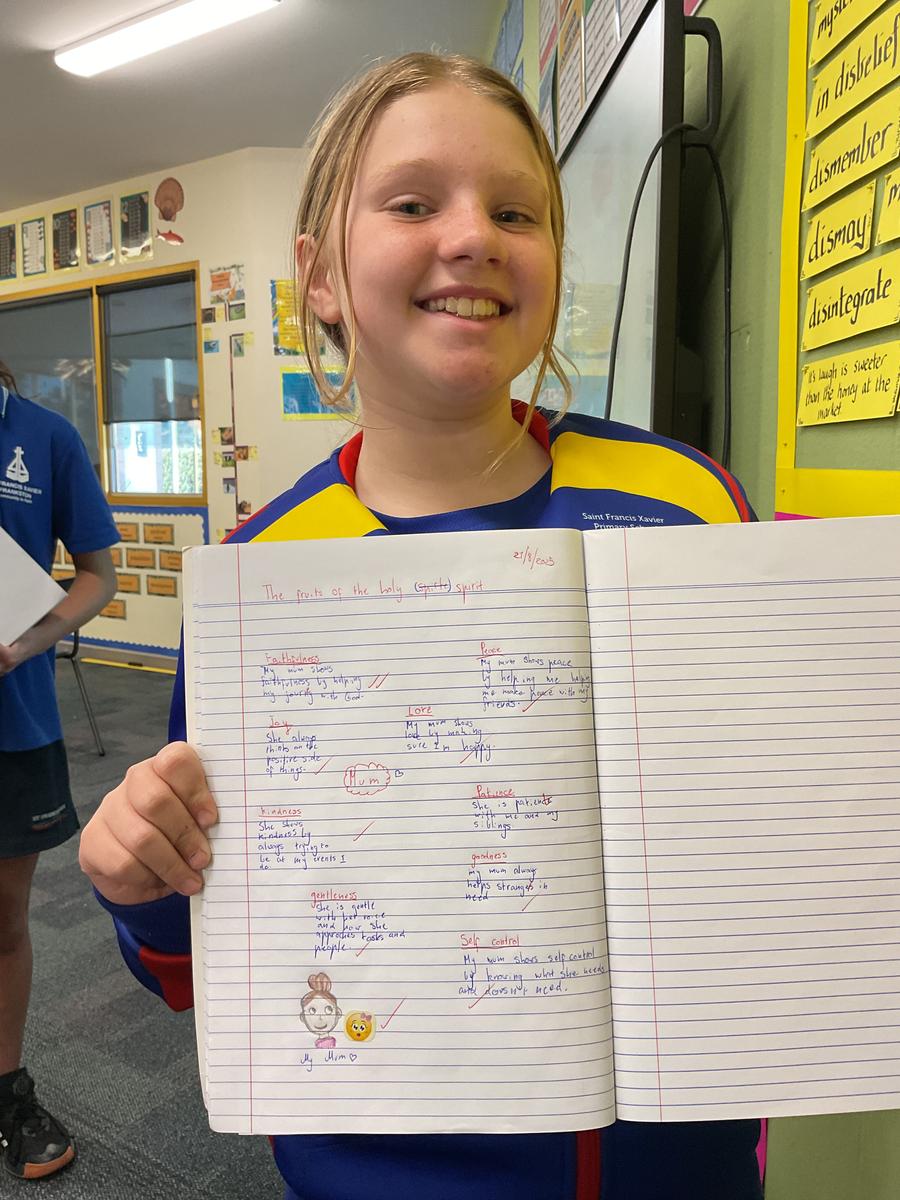 myste
in disbelief
dismember
dismay
m
disintegrate
it's laugh is sweeter
than the honey at the
market.
FRANCIS XAVIER
FRANKSTON
Saint Francis Xavier
Primary Sch
21/8/2025
The fruits of the holy (spirte) spirit
Faithfulness
My mum shows
faithfulness by helping
my journey with God.
Peace
My mum shows peace
by helping me helping
me make peace with my
friends.
Joy
She always
thinks on the
positive side
of things.
Love
My mum shows
love by making
sure I'm happy.
Mum
kindness
She shows
kindness by
always trying to
be at my events I
do
Patience
She is patient
with me and my
siblings
goodness
my mum always
helps stranges in
need
gentleness
She is gentle
with her voice
and how she
approaches tasks and
people.
Self control
My mum shows self control
by knowing what she needs
and doesn't need.
My Mum